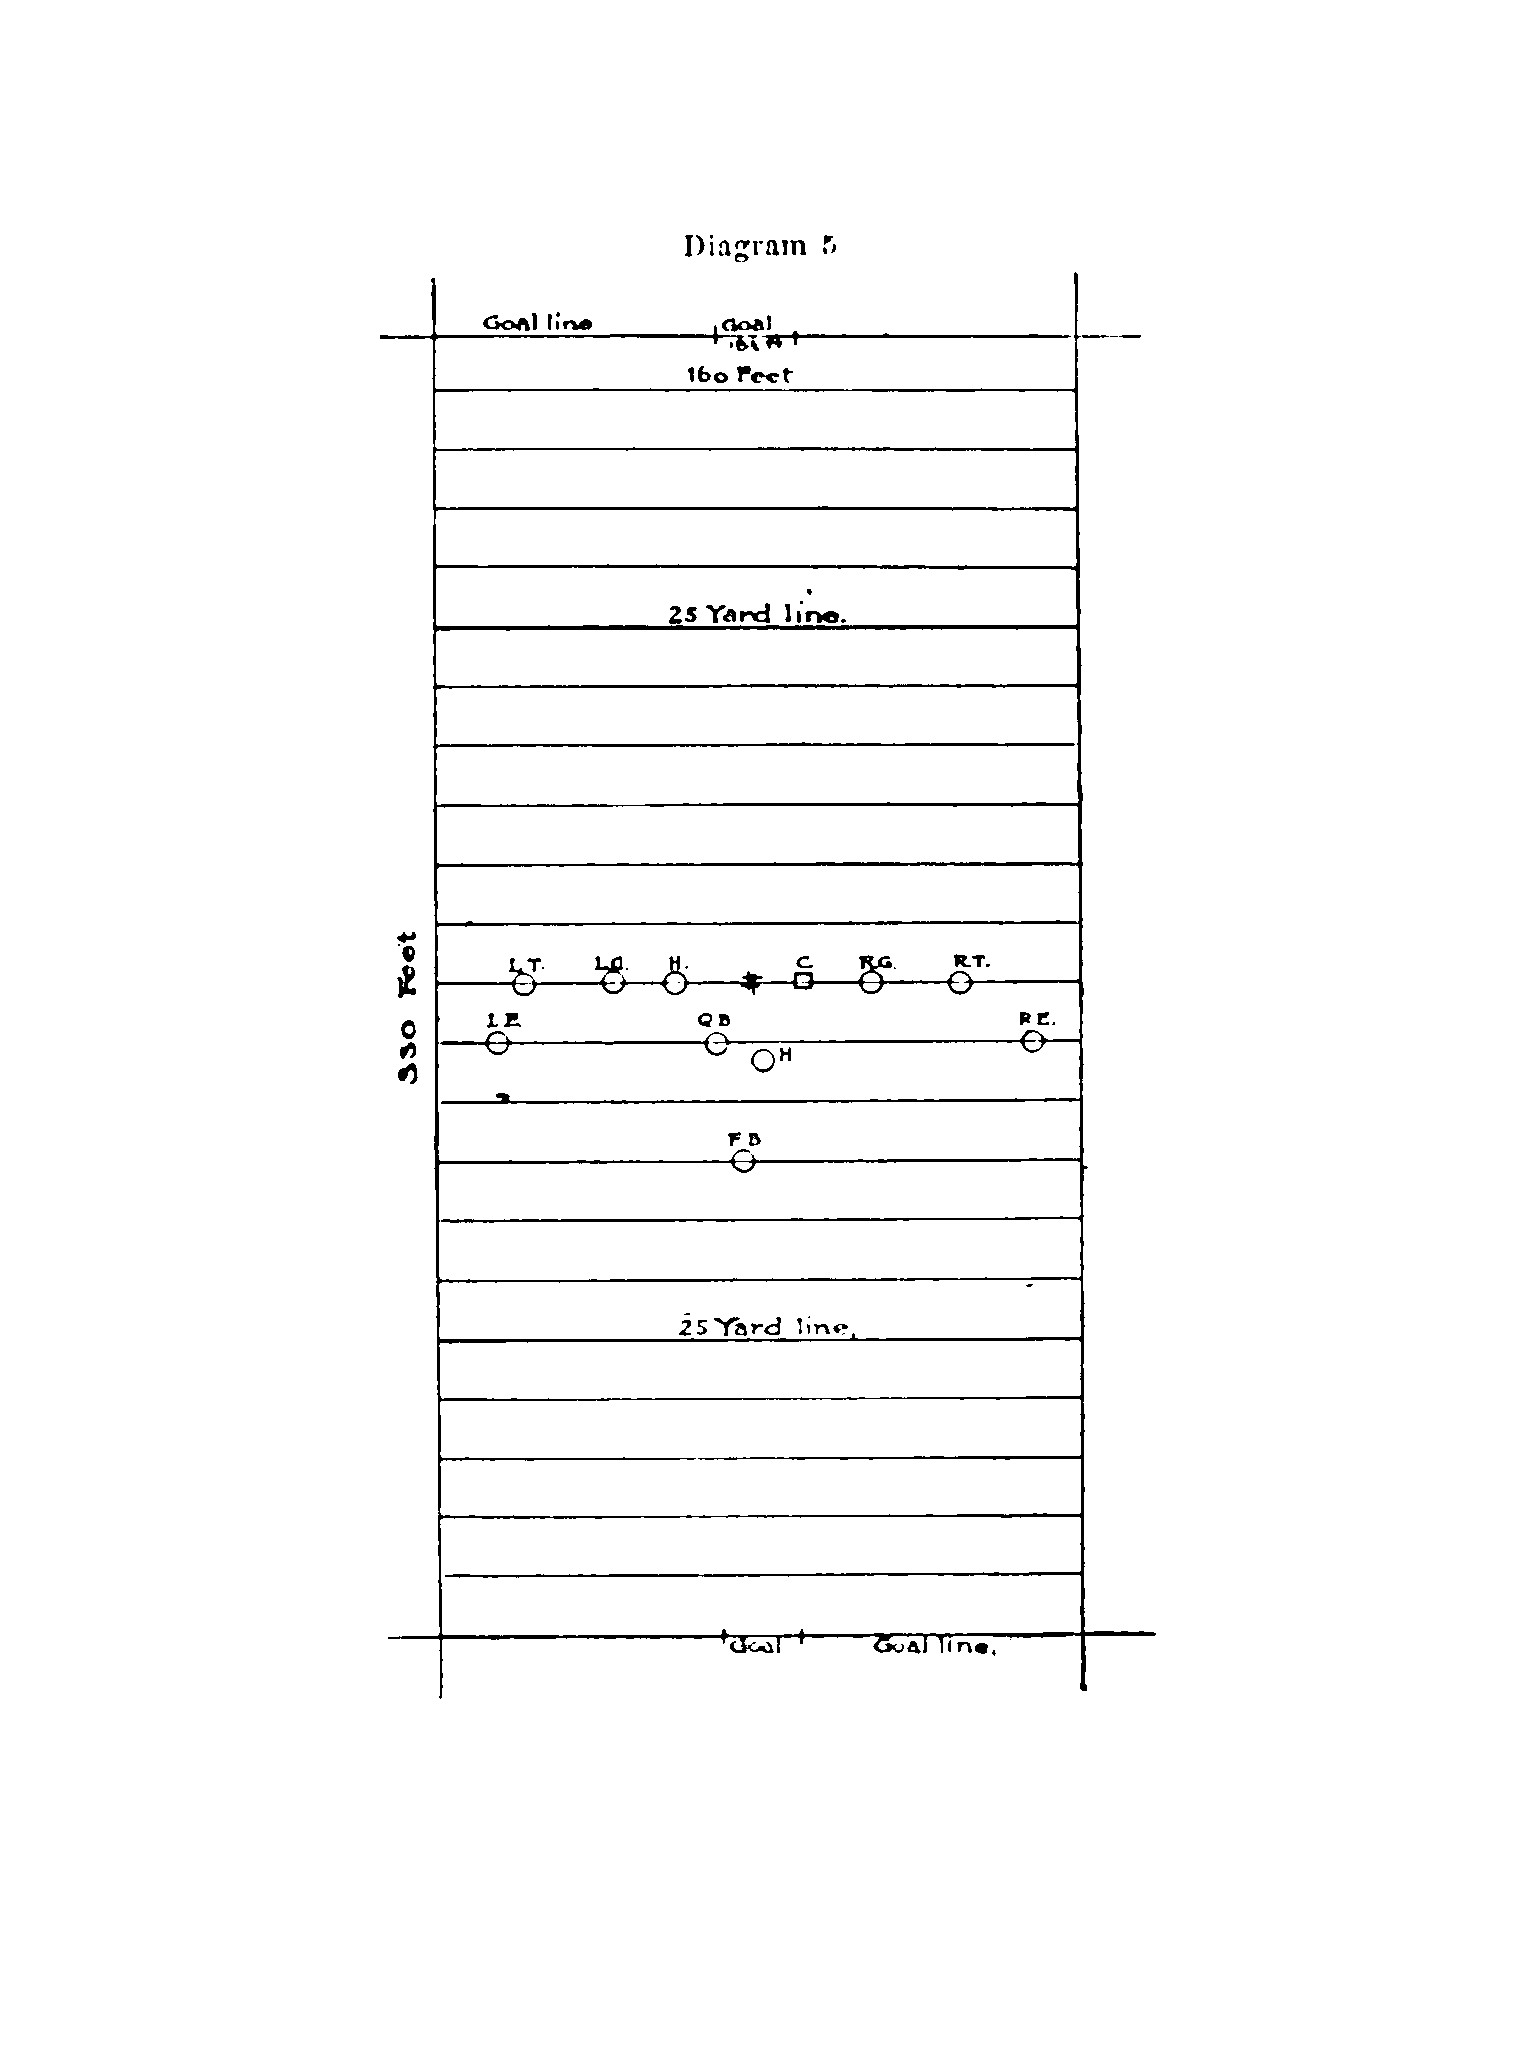 Diagram 5
Goal line Goal
160 Feet
25 Yard line.
330 Feet
L.T. L.G. H. C R.G. R.T.
L E Q B R E.
H
F B
25 Yard line.
Goal Goal line.